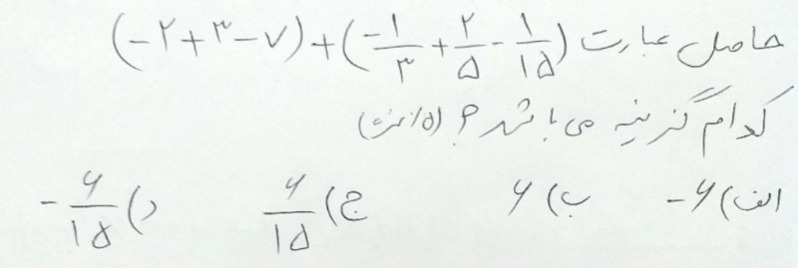 حاصل عبارت (-۲+۳-۷)+(-۱/۳+۲/۵-۱/۱۵)
کدام گزینه می باشد؟ (۰/۵ نمره)
الف) -۶ ب) ۶ ج) ۶/۱۵ د) -۶/۱۵